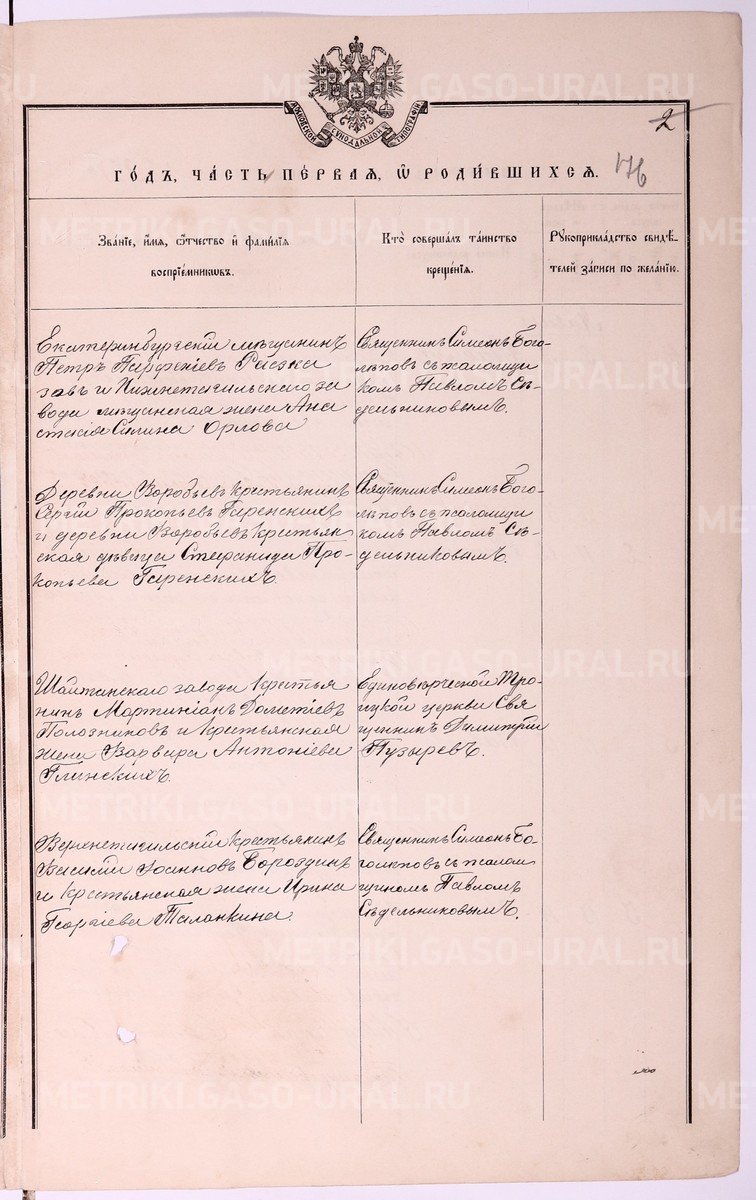 МОСКОВСКОЙ СУНОДАЛЬНОЙ ТИПОГРАФІИ
2
ГОДЪ, ЧАСТЬ ПЕРВАЯ, Ѡ РОДИВШИХСЯ.
176
Званіе, имя, отчество и фамилія
воспріемниковъ.
Кто совершалъ таинство
крещенія.
Рукоприкладство свидѣ-
телей записи по желанію.
Екатеринбургскій мѣщанинъ
Петръ Парфеніевъ
и Нижнетагильскаго за
вода мѣщанская жена Ана
стасія Силина Орлова
Священникъ Симеонъ Бого-
лѣповъ съ псаломщи
комъ Павломъ Сѣ-
дельниковымъ.
Деревни Воробьевъ крестьянинъ
Сергій Прокопьевъ Гаренскихъ
и деревни Воробьевъ крестьян
ская дѣвица Стефанида Про-
копьева Гаренскихъ.
Священникъ Симеонъ Бого-
лѣповъ съ псаломщи
комъ Павломъ Сѣ-
дельниковымъ.
Шайтанскаго завода крестья
нинъ Мартиніанъ Дометіевъ
Полозниковъ и крестьянская
жена Варвара Антоніева
Глинскихъ.
Единовѣрческой Тро-
ицкой церкви Свя
щенникъ Димитрій
Пузыревъ.
Верхнетагильскій крестьянинъ
Василій Іоанновъ Бороздинъ
и крестьянская жена Ирина
Георгіева Таланкина.
Священникъ Симеонъ Бо-
голѣповъ съ псалом
щикомъ Павломъ
Сѣдельниковымъ.
METRIKI.GASO-URAL.RU